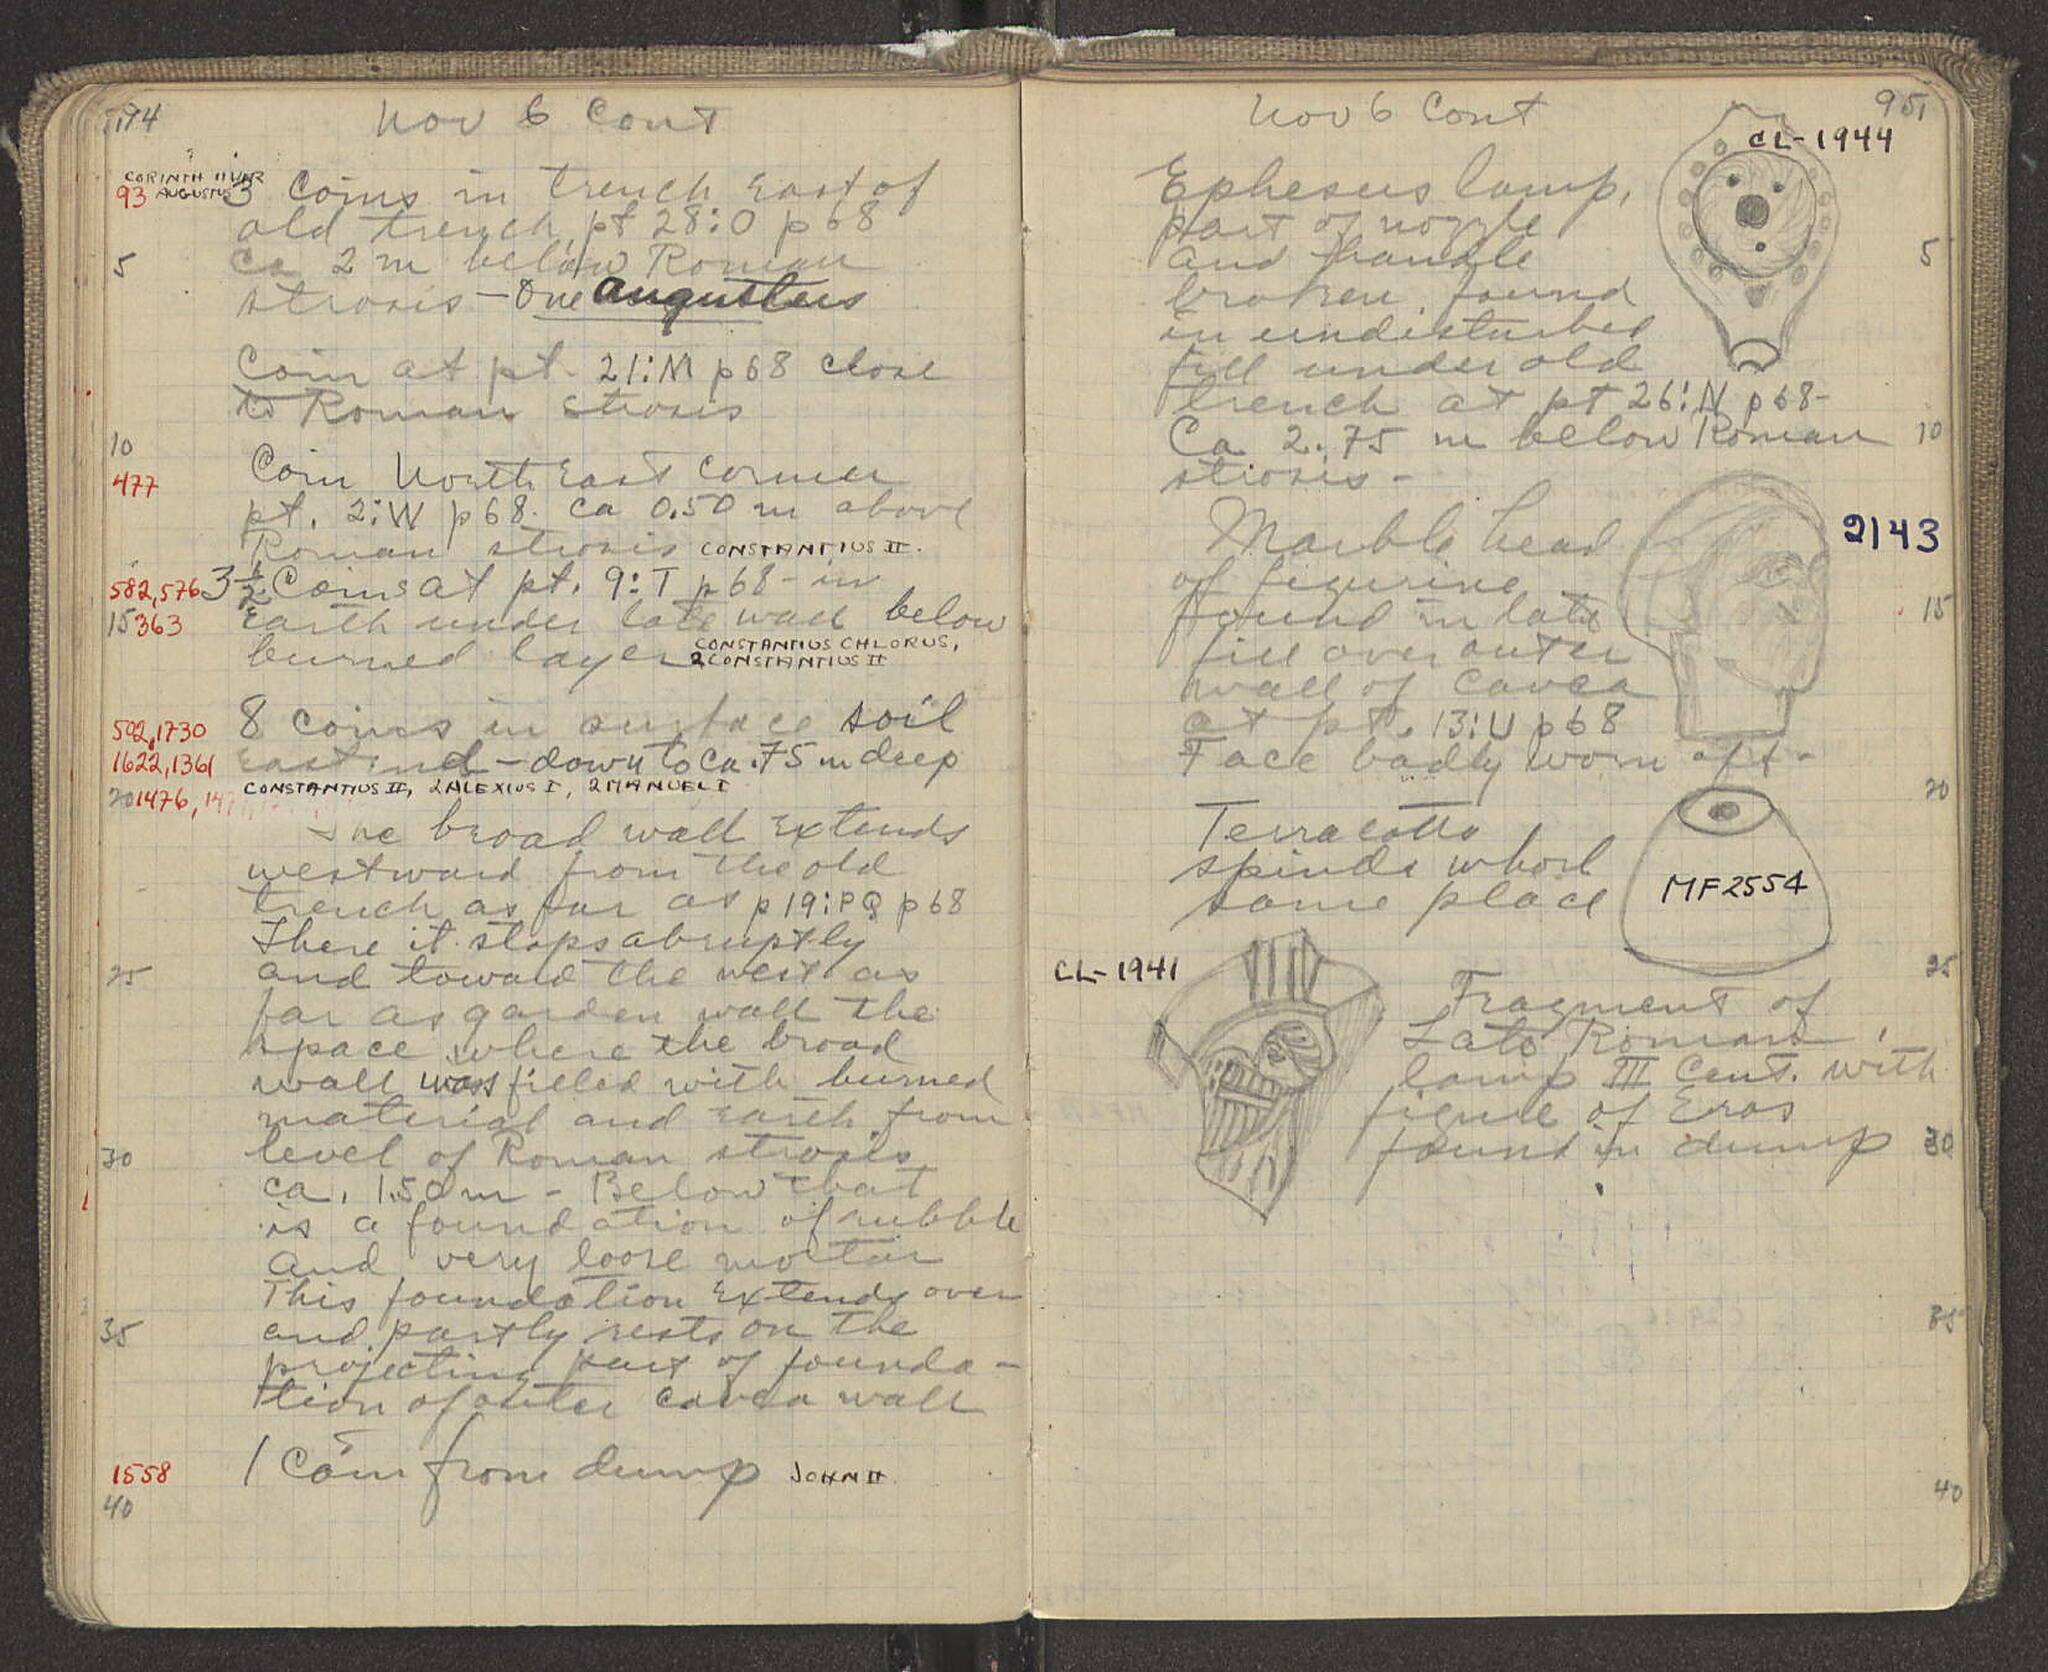 94
Nov 6 Cont
CORINTH IIVIR
93 AUGUSTUS 3 Coins in trench East of
old trench, pt 28:O p68
5 Ca 2 m below Roman
strosis - One Augusteus
Coin at pt. 21:M p68 close
to Roman strosis
10
477 Coin North East corner
pt. 2:W p68. ca 0.50 m above
Roman strosis CONSTANTIUS II.
582,576 3 1/2 Coins at pt. 9:T p68 - in
15 363 Earth under late wall below
burned layer CONSTANTIUS CHLORUS,
2 CONSTANTIUS II
502,1730 8 coins in surface soil
1622,1361 East end - down to ca .75 m deep
20 1476, CONSTANTIUS II, 2 ALEXIUS I, 2 MANUEL I
The broad wall Extends
westward from the old
trench as far as p19:PQ p68
There it stops abruptly
25 and toward the west as
far as garden wall the
space where the broad
wall was filled with burned
material and earth from
30 level of Roman strosis
ca. 1.50 m - Below that
is a foundation of rubble
and very loose mortar
This foundation Extends over
35 and partly rests on the
projecting part of founda-
tion of outer cavea wall
1558 1 Coin from dump JOHN II.
40
95
Nov 6 Cont
CL-1944
Ephesus lamp,
part of nozzle
5 and handle
broken, found
in undisturbed
fill under old
trench at pt 26:N p68-
10 Ca 2.75 m below Roman
strosis -
Marble head
2143
of figurine
15 found in late
fill over outer
wall of cavea
at pt. 13:U p68
Face badly worn off -
20
Terracotta
spindle whorl
same place
MF2554
25
CL-1941
Fragment of
Late Roman
lamp III Cent. with
figure of Eros
30 found in dump
35
40